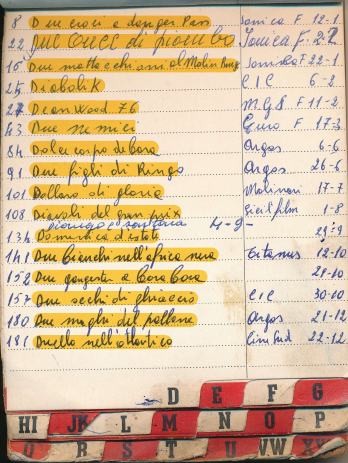 8 Due croci a danger Pass Jonica F 12-1
22 Due croci di piombo Jonica F.
15 Due mattacchioni al Molin Roug Jonica F 22-1
25 Diabolik CIC 6-2
27 Dean Wood 76 M.G8 F 11-2
43 Due nemici Euro F 17-3
84 Dolce corpo Argos 6-6
91 Due figli di Ringo Argos 26-6
101 Dollaro di gloria Molinari 17-7
108 Diavoli del gran prix Sicilfilm 1-8
4-9-
134 Domenica d'estate 29-9
141 Due bianchi nell'africa nera Titanus 12-10
152 Due gangster a Cora Cora 21-10
157 Due occhi di ghiaccio CIC 30-10
180 Due maghi del pallone Argos 21-12
181 Duello nell'atlantico Cine Sud 22-12
D E F G
HI JK L M N O P
Q R S T U VW XY